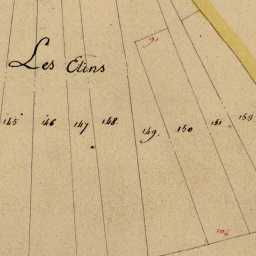 Les Etins
145 146 147 148. 149. 150 151